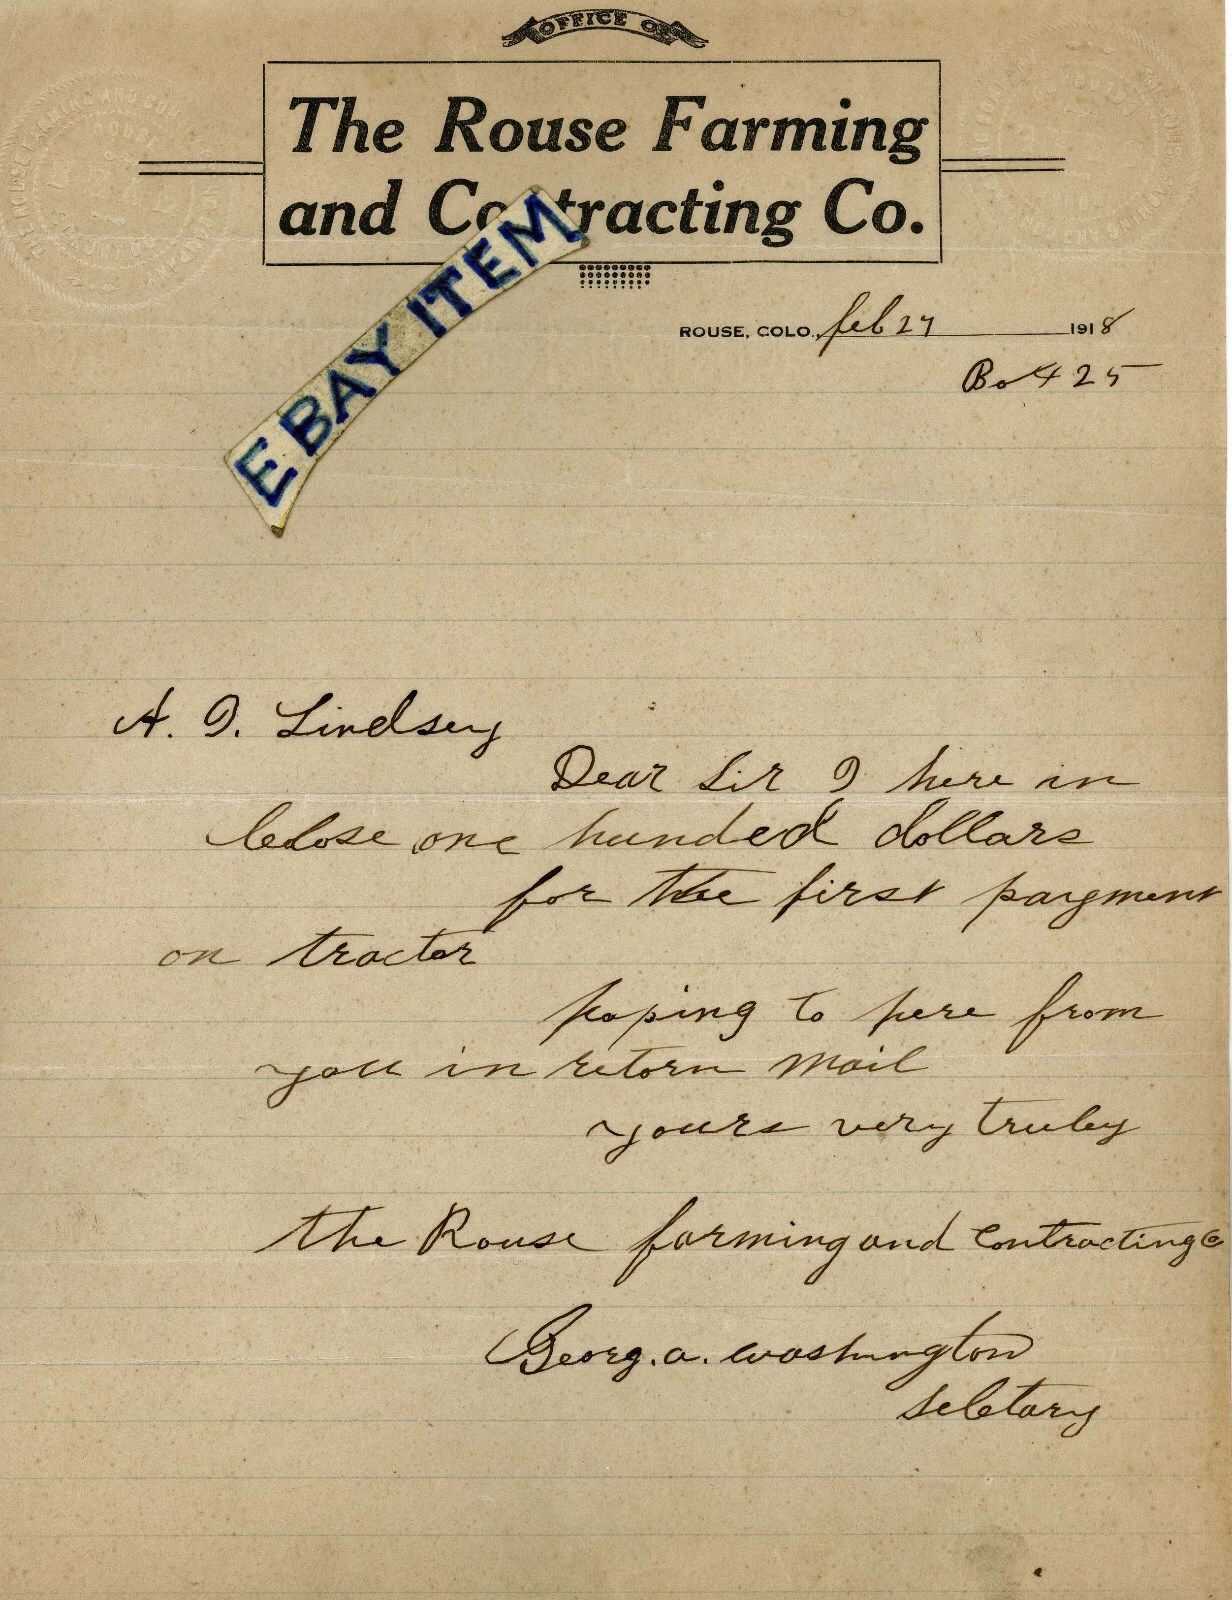 OFFICE OF
The Rouse Farming
and Contracting Co.
EBAY ITEM
ROUSE, COLO., feb 27 1918
Box 25
A. I. Lindsey
Dear Sir I here in
close one hunded dollars
for the first paygment
on tractor
hoping to here from
you in retorn mail
yours very truley
the Rouse farming and Contracting Co
Georg. a. washington
seletary